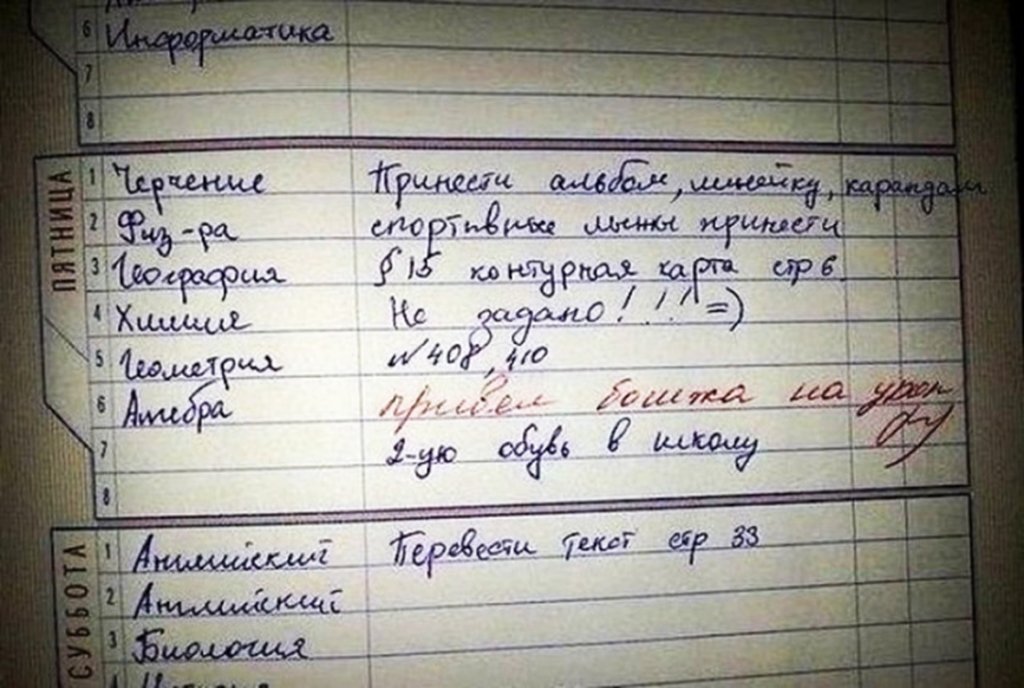 6 Информатика
7
8
ПЯТНИЦА
1 Черчение Принести альбом, линейку, карандаш
2 Физ-ра спортивные лыжы принести
3 География § 15 контурная карта стр 6
4 Химия Не задано! ! ! =)
5 Геометрия № 408, 410
6 Алгебра привел бомжа на урок
7 2-ую обувь в школу
8
СУББОТА
1 Английский Перевести текст стр 33
2 Английский
3 Биология